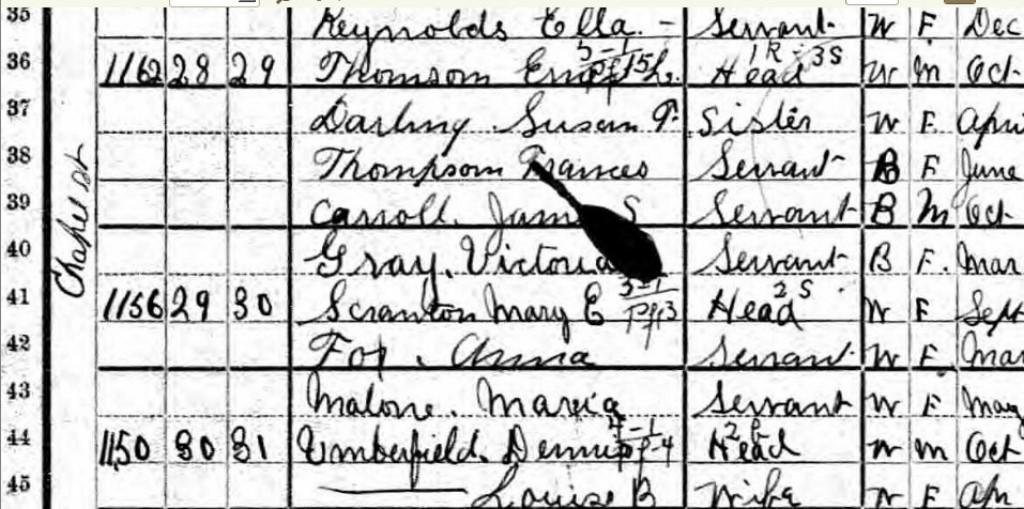 35 Reynolds Ella. - Servant W F Dec
36 1162 28 29 Thomson Head W M Oct
37 Darling Susan P. Sister W F Apri
38 Thompson Frances Servant B F June
39 Carroll. James S Servant B M Oct
40 Gray. Victoria Servant B F. Mar
41 1156 29 30 Scranton Mary E Head W F Sept
42 Fox. Anna Servant W F Mar
43 Malone. Maria Servant W F May
44 1150 30 31 Umberfield. Head W M Oct
45 Louise B Wife W F Apr
Chapel st